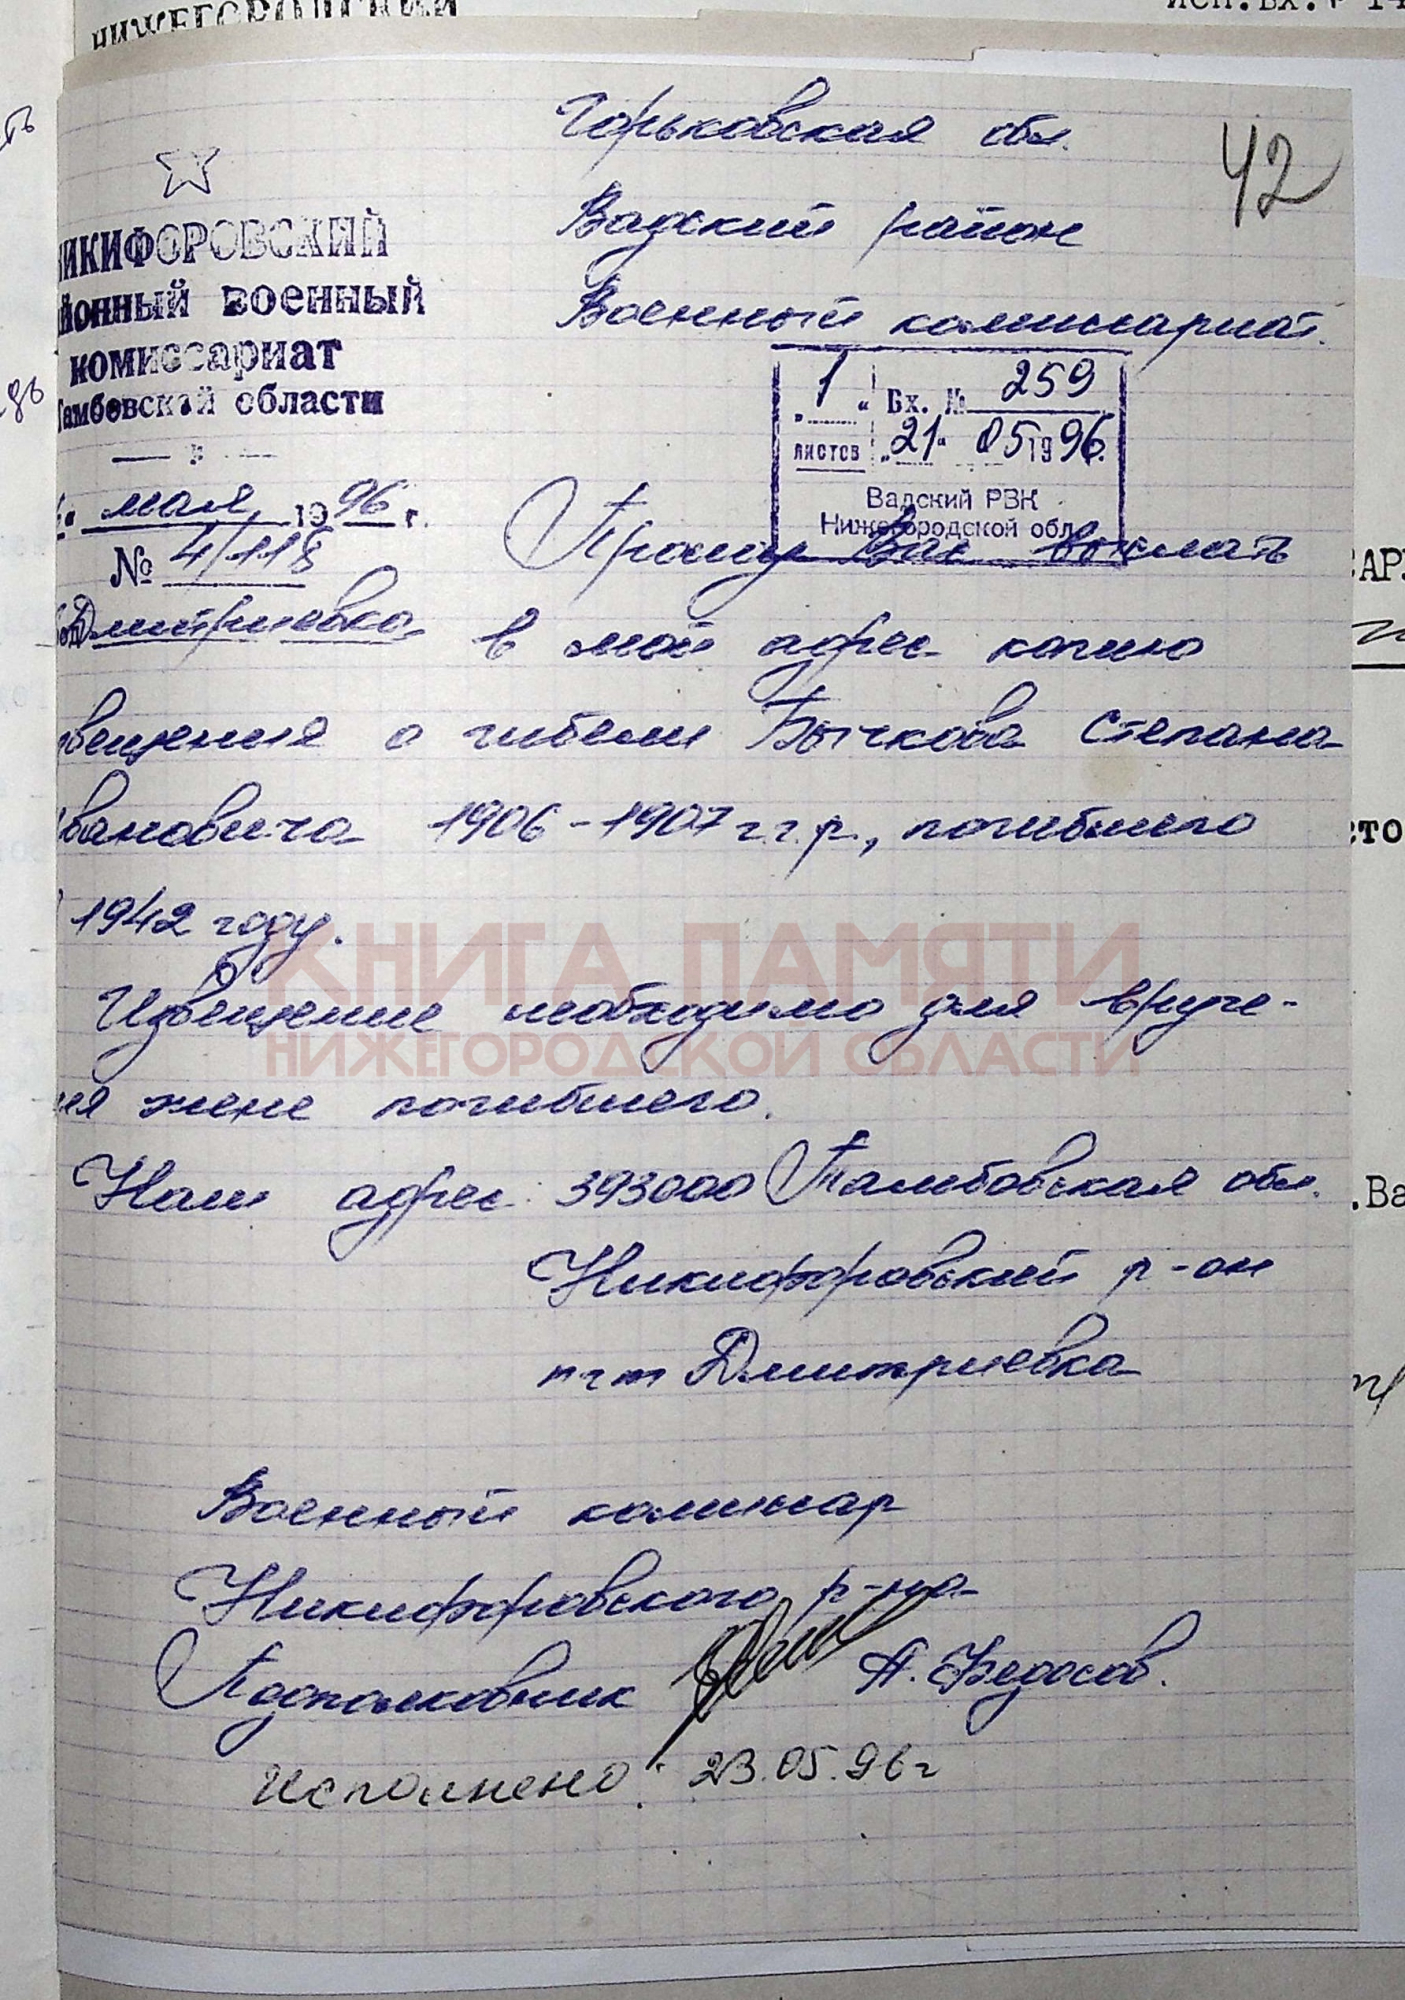 НИЖЕГОРОДСКИЙ
исп.вх.
Горьковская обл.
42
Вадский район
Военный комиссариат.
НИКИФОРОВСКИЙ
йонный военный
комиссариат
Тамбовской области
1 Вх. № 259
листов „21“ 05 1996.
Вадский РВК
Нижегородской обл
мая 1996 г.
№ 4/118
Дмитриевка
Прошу Вас выслать
в мой адрес копию
вещения о гибели Бычкова Степана
вановича 1906-1907 г.г.р., погибшего
1942 году.
Извещение необходимо для вруче-
ия жене погибшего.
Наш адрес: 393000 Тамбовская обл.
Никифоровский р-он
пгт Дмитриевка
Военный комиссар
Никифоровского р-на
Подполковник А. Федосов.
Исполнено: 23.05.96г
КНИГА ПАМЯТИ
НИЖЕГОРОДСКОЙ ОБЛАСТИ